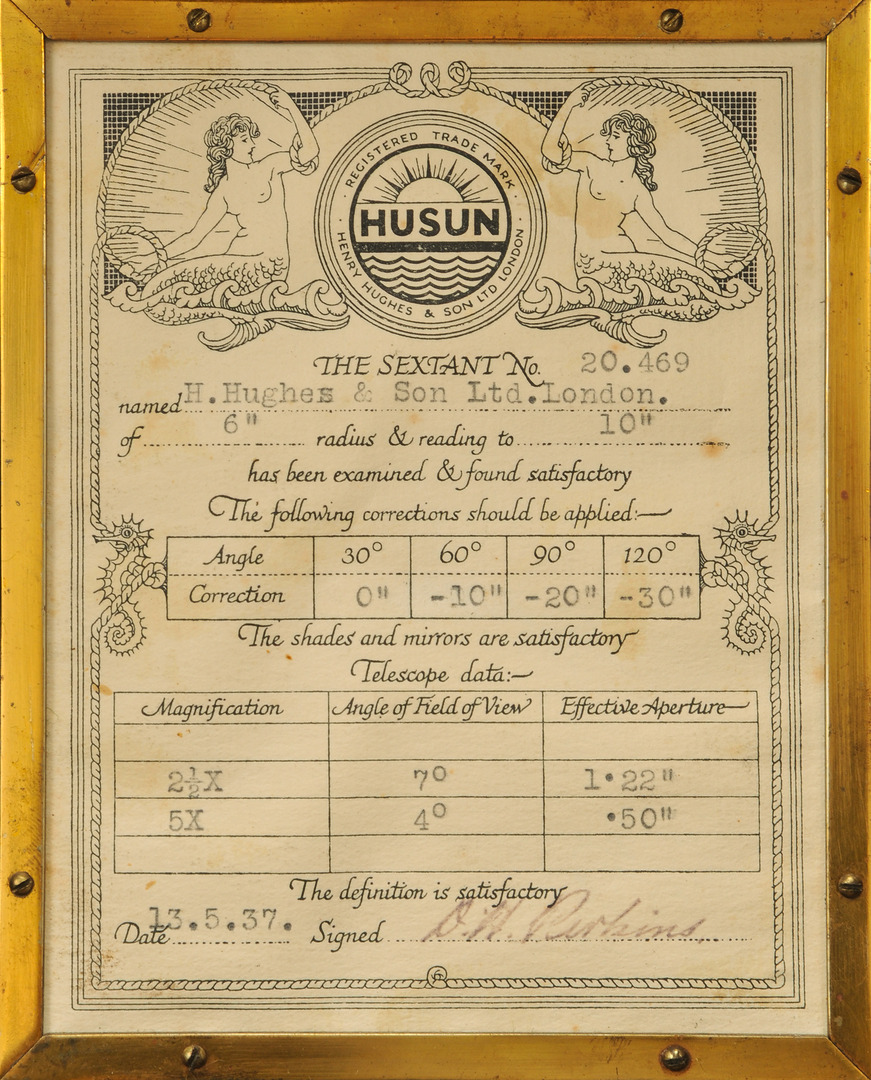 REGISTERED TRADE MARK
HUSUN
HENRY HUGHES & SON LTD LONDON
THE SEXTANT No. 20.469
named H.Hughes & Son Ltd.London.
of 6" radius & reading to 10"
has been examined & found satisfactory
The following corrections should be applied:—
Angle 30° 60° 90° 120°
Correction 0" -10" -20" -30"
The shades and mirrors are satisfactory
Telescope data:—
Magnification Angle of Field of View Effective Aperture
2½X 7° 1.22"
5X 4° .50"
The definition is satisfactory
Date 13.5.37. Signed D.W. Perkins